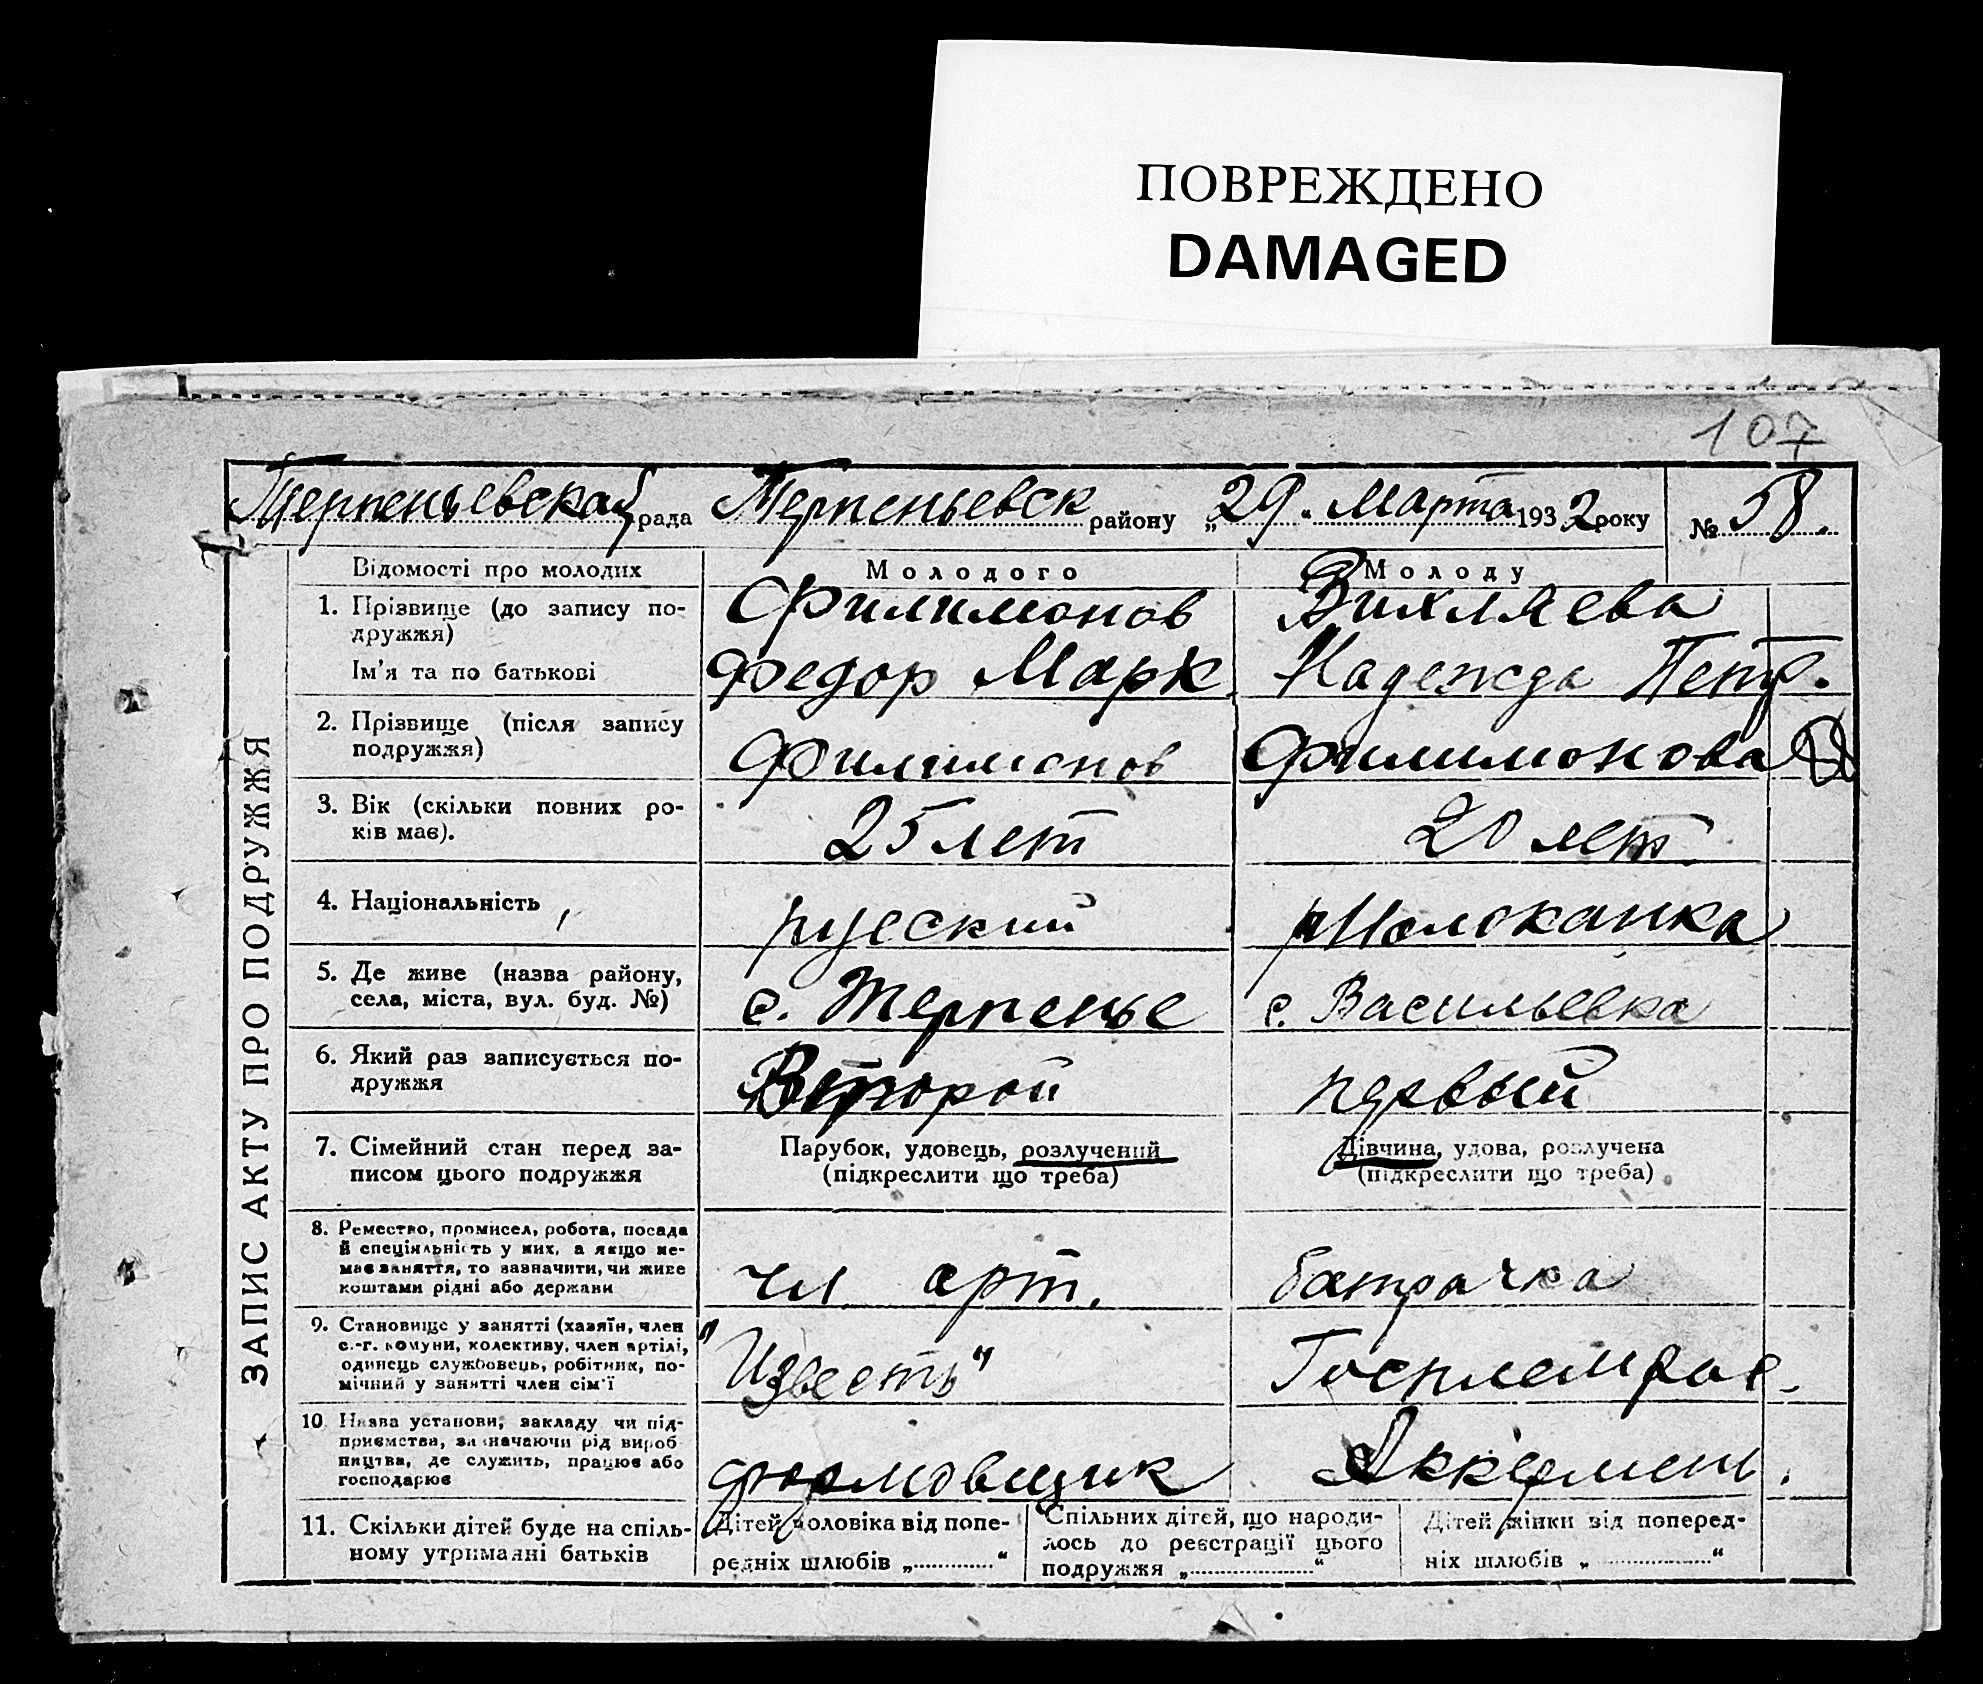 ПОВРЕЖДЕНО
DAMAGED
107
Терпеньевской рада Терпеньевск району „29" Марта 1932 року № 58.
ЗАПИС АКТУ ПРО ПОДРУЖЖЯ
Відомості про молодих Молодого Молоду
1. Прізвище (до запису по-
дружжя)
Филимонов Вихляева
Ім'я та по батькові Федор Марк. Надежда Петр.
2. Прізвище (після запису
подружжя)
Филимонов Филимонова
3. Вік (скільки повних ро-
ків має).
25 лет 20 лет.
4. Національність русский Молоканка
5. Де живе (назва району,
села, міста, вул. буд. №)
с. Терпенье с. Васильевка
6. Який раз записується по-
дружжя
Второй первый
7. Сімейний стан перед за-
писом цього подружжя
Парубок, удовець, розлучений
(підкреслити що треба)
Дівчина, удова, розлучена
(підкреслити що треба)
8. Ремество, промисел, робота, посада
й спеціяльність у них, а якщо не-
має заняття, то зазначити, чи живе
коштами рідні або держави
чл. арт. батрачка
9. Становище у занятті (хазяїн, член
с.-г. комуни, колективу, член артілі,
одинець службовець, робітник, по-
мічний у занятті член сім'ї
"Известь" Госплемрас.
10 Назва установи, закладу чи під-
приємства, зазначаючи рід вироб
ництва, де служить, працює або
господарює
формовщик Аккермень.
11. Скільки дітей буде на спіль-
ному утриманні батьків
Дітей чоловіка від попе-
редніх шлюбів „..............“
Спільних дітей, що народи-
лось до реєстрації цього
подружжя „......................“
Дітей жінки від поперед-
ніх шлюбів „....................“